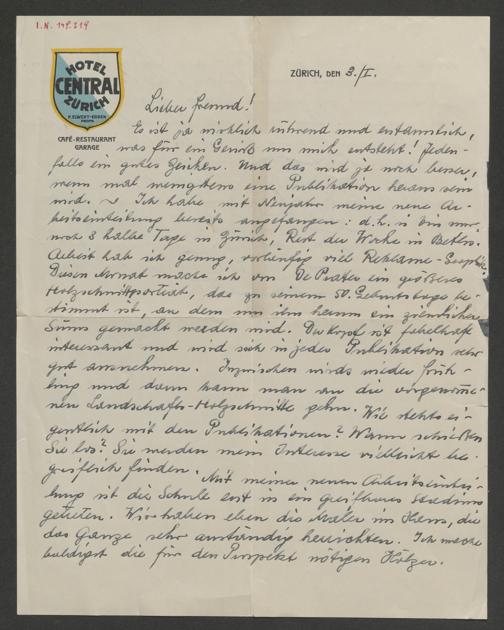 I.N. 149.319
HOTEL
CENTRAL
ZÜRICH
P. ELWERT-EGGEN
PROPR.
CAFÉ-RESTAURANT
GARAGE
ZÜRICH, DEN 3./I.
Lieber Freund!
Es ist ja wirklich rührend und erstaunlich,
was für ein Genüß um mich entsteht! Jeden-
falls ein gutes Zeichen. Und das wird ja noch besser,
wenn mal wenigstens eine Publikation heraus sein
wird. Ich habe mit Neujahr meine neue Ar-
beitseinteilung bereits angefangen: d.h. ich bin nur
noch 3 halbe Tage in Zürich, Rest der Woche in
Arbeit hab ich genug, vorläufig viel Reklame-Graphik.
Diesen Monat mache ich von De Prater ein größeres
Holzschnittporträt, das zu seinem 50. Geburtstage be-
stimmt ist, an dem um ihn herum ein ziemlicher
Summs gemacht werden wird. Der Kopf ist fabelhaft
interessant und wird sich in jeder Publikation sehr
gut ausnehmen. Inzwischen wirds wieder Früh-
ling und dann kann man an die vorgenomme-
nen Landschafts-Holzschnitte gehn. Wie stehts ei-
gentlich mit den Publikationen? Wann schießen
Sie los? Sie werden mein Interesse vielleicht be-
greiflich finden. Mit meiner neuen Arbeitseintei-
lung ist die Schule erst in ein greifbares Stadium
getreten. Wir haben eben die Maler im Haus, die
das Ganze sehr anständig herrichten. Ich mache
baldigst die für den Prospekt nötigen Hölzer.